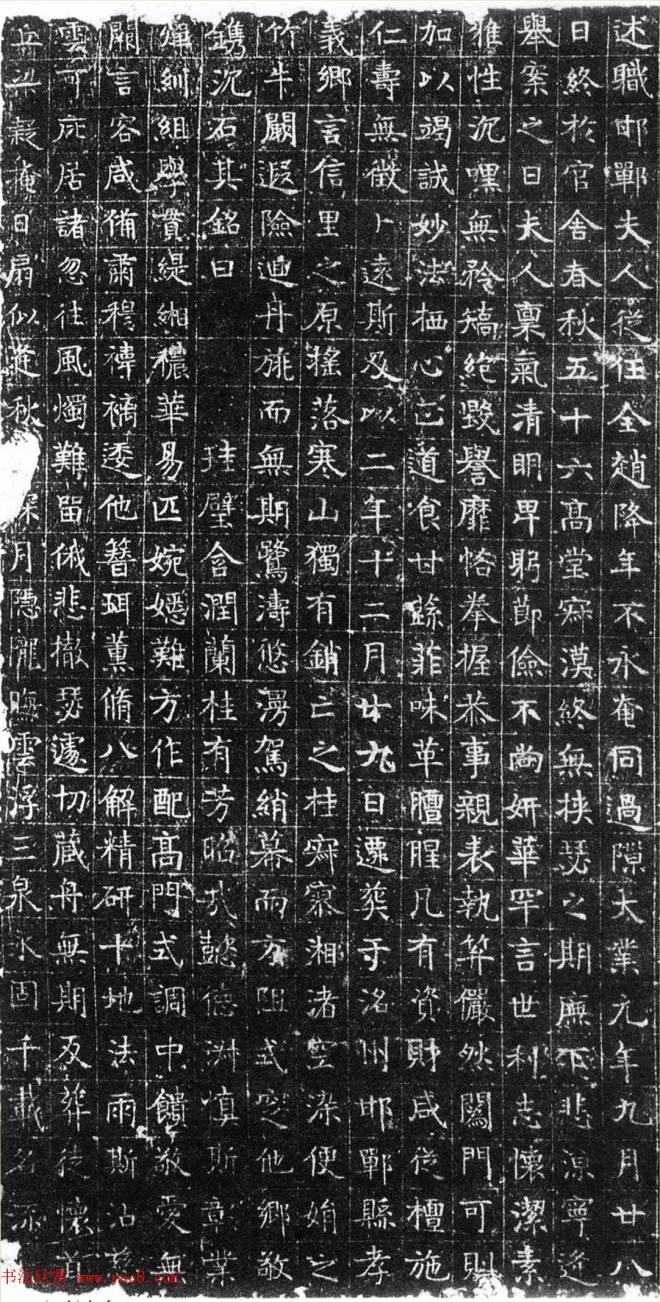 述職邯鄲夫人從任全趙降年不永奄同過隙大業元年九月廿八
日終於官舍春秋五十六高堂寂漠終無挾瑟之期廡下悲涼寧近
舉案之日夫人稟氣清明卑躬節儉不尚妍華罕言世利志懷潔素
雅性沉嘿無矜矯絕毀譽靡悋拳握恭事親表執筭儼然闔門可則
加以竭誠妙法栖心正道食甘蔬菲味革膻腥凡有資財咸從檀施
仁壽無徵卜遠斯及以二年十二月廿九日遷葬于洺州邯鄲縣孝
義鄉言信里之原搖落寒山獨有銷亡之桂寂寥湘渚空染便娟之
竹牛闕遐險迴丹旐而無期鷺濤悠漫駕綃幕而方阻式窆他鄉敬
鐫沉石其銘曰 挂璧含潤蘭桂有芳昭哉懿德淋慎斯彰業
紃組學貫緹緗穠華易匹婉嫕難方作配高門式調中饋敬愛無
闕言容咸備肅穆褘褵委他簪珥薰脩八解精研十地法雨斯沾
雲可庇居諸忽往風燭難留俄悲撤瑟遽切藏舟無期反葬徒懷首
丘 輟掩日扇似逢秋 深月隱 晦雲浮三泉永固千載名
书法欣赏 www.yac8.com